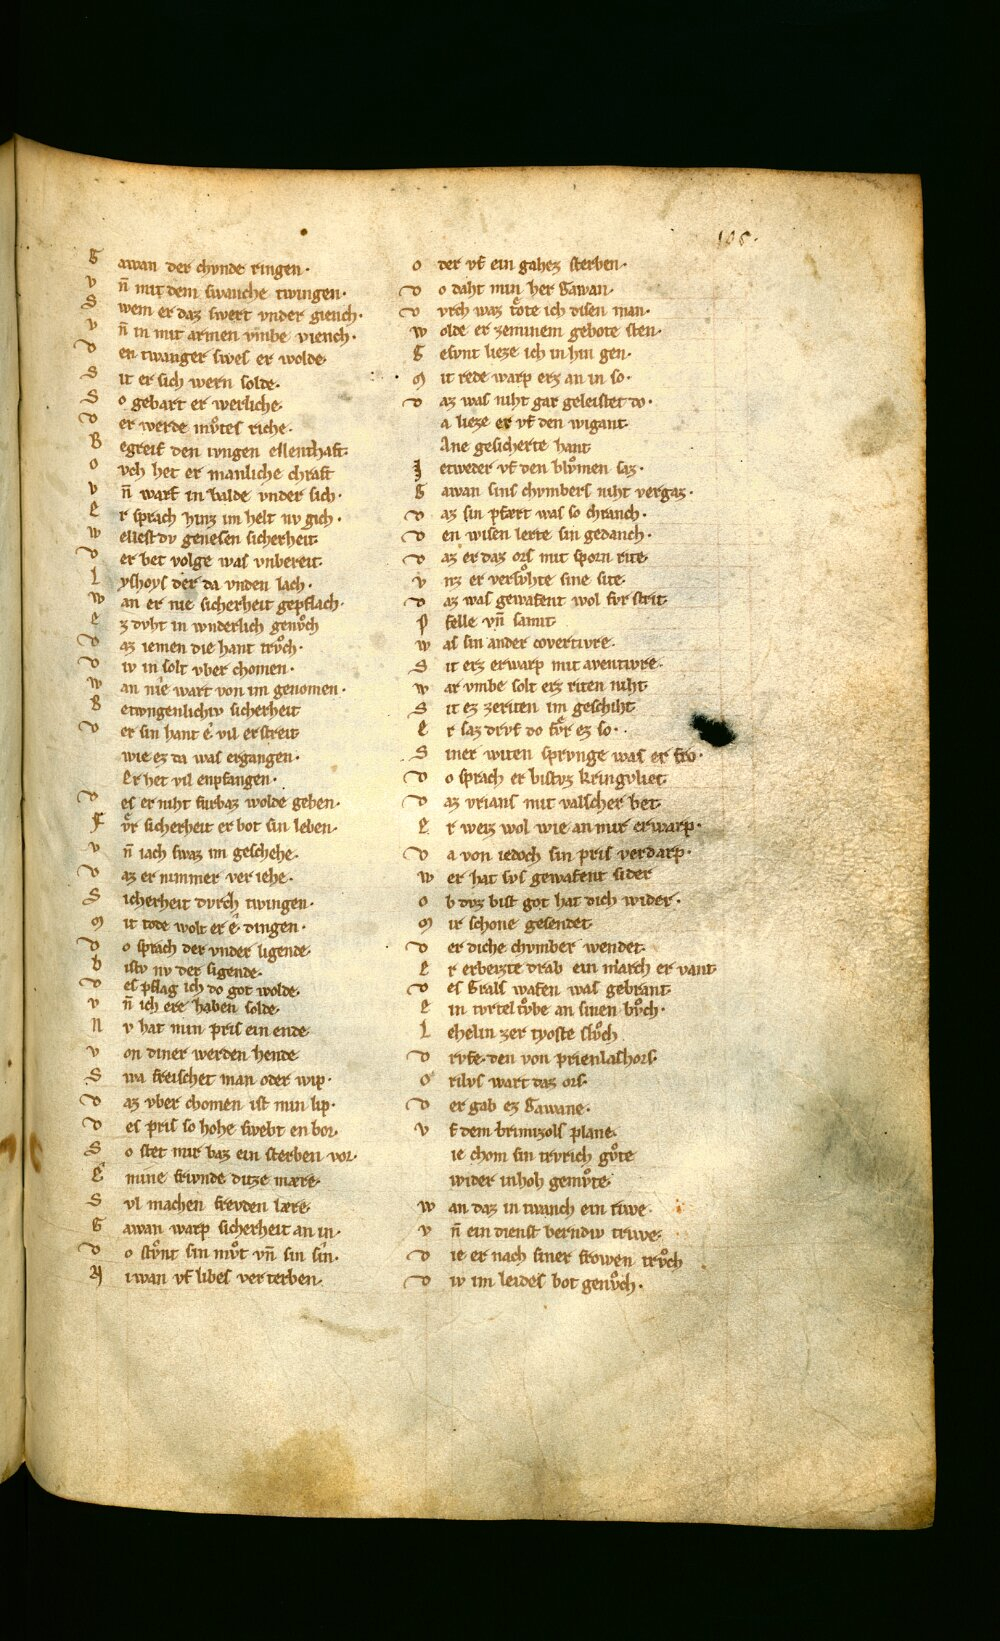 105.
G awan der chvnde ringen·
v n̄ mit dem swanche twingen·
S wem er daz swert vnder giench·
v n̄ in mit armen vmbe viench·
D en twanger swes er wolde·
S it er sich wern solde·
S o gebart er werliche·
D er werde mv̊tes riche·
B egreif den ivngen ellenthaft·
O vch het er manliche chraft
v n̄ warf in balde vnder sich·
E r sprach hinz im helt nv gich·
W ellest dv genesen sicherheit·
D er bet volge was vnbereit·
L yshoys der da vnden lach·
W an er nie sicherheit gepflach·
E z dvht in wnderlich genv̊ch
D az iemen die hant trv̊ch·
D iv in solt vber chomen·
W an nie wart von im genomen·
B etwngenlichiv sicherheit
D er sin hant ê vil erstreit
wie ez da was ergangen·
Er het vil enpfangen·
D es er niht fvrbaz wolde geben·
F v̊r sicherheit er bot sin leben·
v n̄ iach swaz im geschehe·
D az er nimmer veriehe·
S icherheit dvrch twingen·
M it tode wolt er ê dingen·
D o sprach der vnder ligende·
B istv nv der sigende·
D es pflag ich do got wolde·
v n̄ ich ere haben solde·
N v hat min pris ein ende
v on diner werden hende
S wa freischet man oder wip·
D az vber chomen ist min lip·
D es pris so hohe swebt enbor·
S o stet mir baz ein sterben vor·
E mine frivnde ditze mære·
S vl machen frevden lære·
G awan warp sicherheit an in·
D o stv̊nt sin mv̊t vn̄ sin sin·
N iwan vf libes verterben·
O der vf ein gahez sterben·
D o daht min her Gawan·
D vrch waz tôte ich disen man·
W olde er zeminem gebote sten·
G esvnt lieze ich in hin gen·
M it rede warp erz an in so·
D az was niht gar geleistet do·
a lieze er vf den wigant·
Ane gesicherte hant
I etweder vf den blv̊men saz·
G awan sins chvmbers niht vergaz·
D az sin pfært was so chranch·
D en wisen lerte sin gedanch·
D az er daz ors mit sporn rite·
v nz er versv̊hte sine site·
D az was gewafent wol fvr strit·
P felle vn̄ samit
W as sin ander covertivre·
S it erz erwarp mit aventivre·
W ar vmbe solt erz riten niht·
S it ez zeriten im geschiht
E r saz drvf do fv̊r ez so·
S iner witen sprvnge was er fro·
D o sprach er bistvz kringvliet·
D az vrians mit valscher bet·
E r weiz wol wie an mir erwarp·
D a von iedoch sin pris verdarp·
W er hat svs gewafent sider
O b dvz bist got hat dich wider·
M ir schone gesendet·
D er diche chvmber wendet·
E r erbeizte drab ein march er vant·
D es Grals wafen was gebrant·
E in tvrteltv̊be an sinen bv̊ch·
L ehelin zer tyoste slv̊ch
D rvfe den von prienlashors·
O rilvs wart daz ors·
D er gab ez Gawane·
V f dem brimizols plane·
ie chom sin trvrich gv̊te
wider inhoh gemv̊te·
W an daz in twanch ein riwe·
v n̄ ein dienst berndiv triwe·
D ie er nach siner frowen trv̊ch
D iv im leides bot genv̊ch·